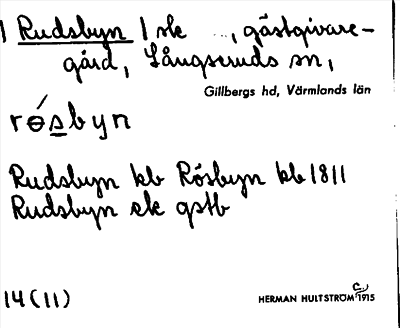 Rudsbyn 1 sk , gästgivare-
gård, Långseruds sn,
Gillbergs hd, Värmlands län
rǿsbyn
Rudsbyn kb Rösbyn kb 1811
Rudsbyn ek gstb
14 (11)
HERMAN HULTSTRÖM C 1915